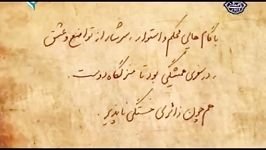 با گام هایی محکم و استوار ، سرشار از تواضع و عشق
رهسوی همیشگی بود تا منزلگاه دوست .
همچون زائری خستگی ناپذیر .